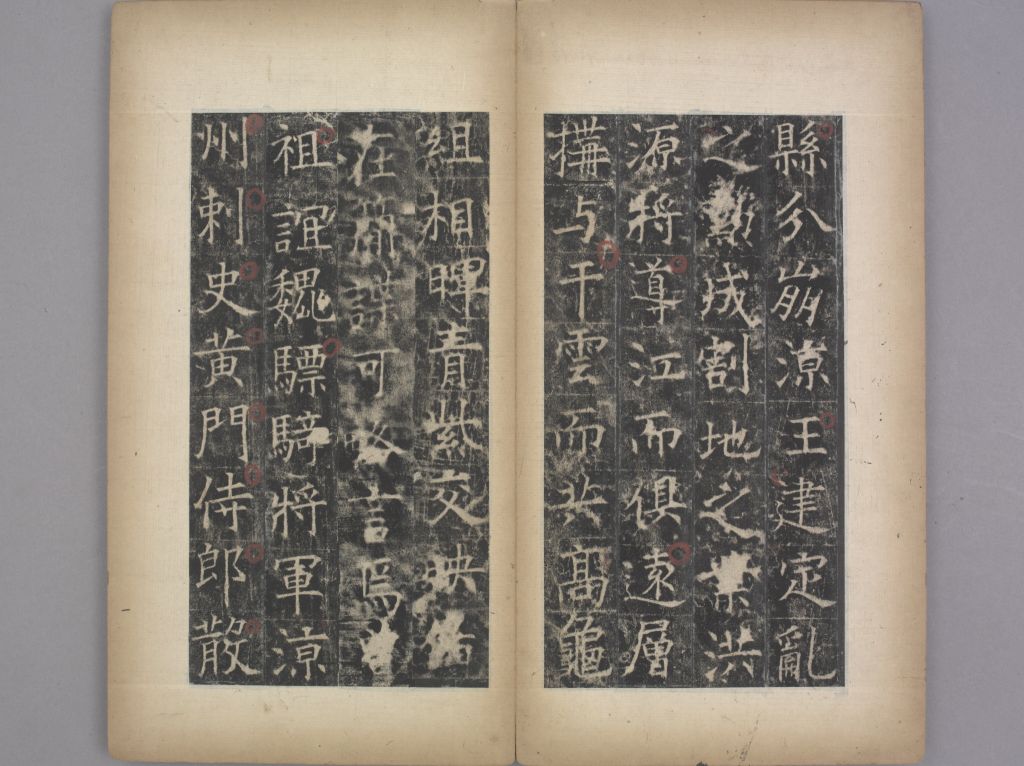 縣分崩涼王建定亂
之勳成割地之業洪
源將導江而俱遠層
搆与干雲而共高龜
組相暉青紫交映備
在簡諜可略言焉曾
祖誼魏驃騎將軍涼
州刺史黃門侍郎散